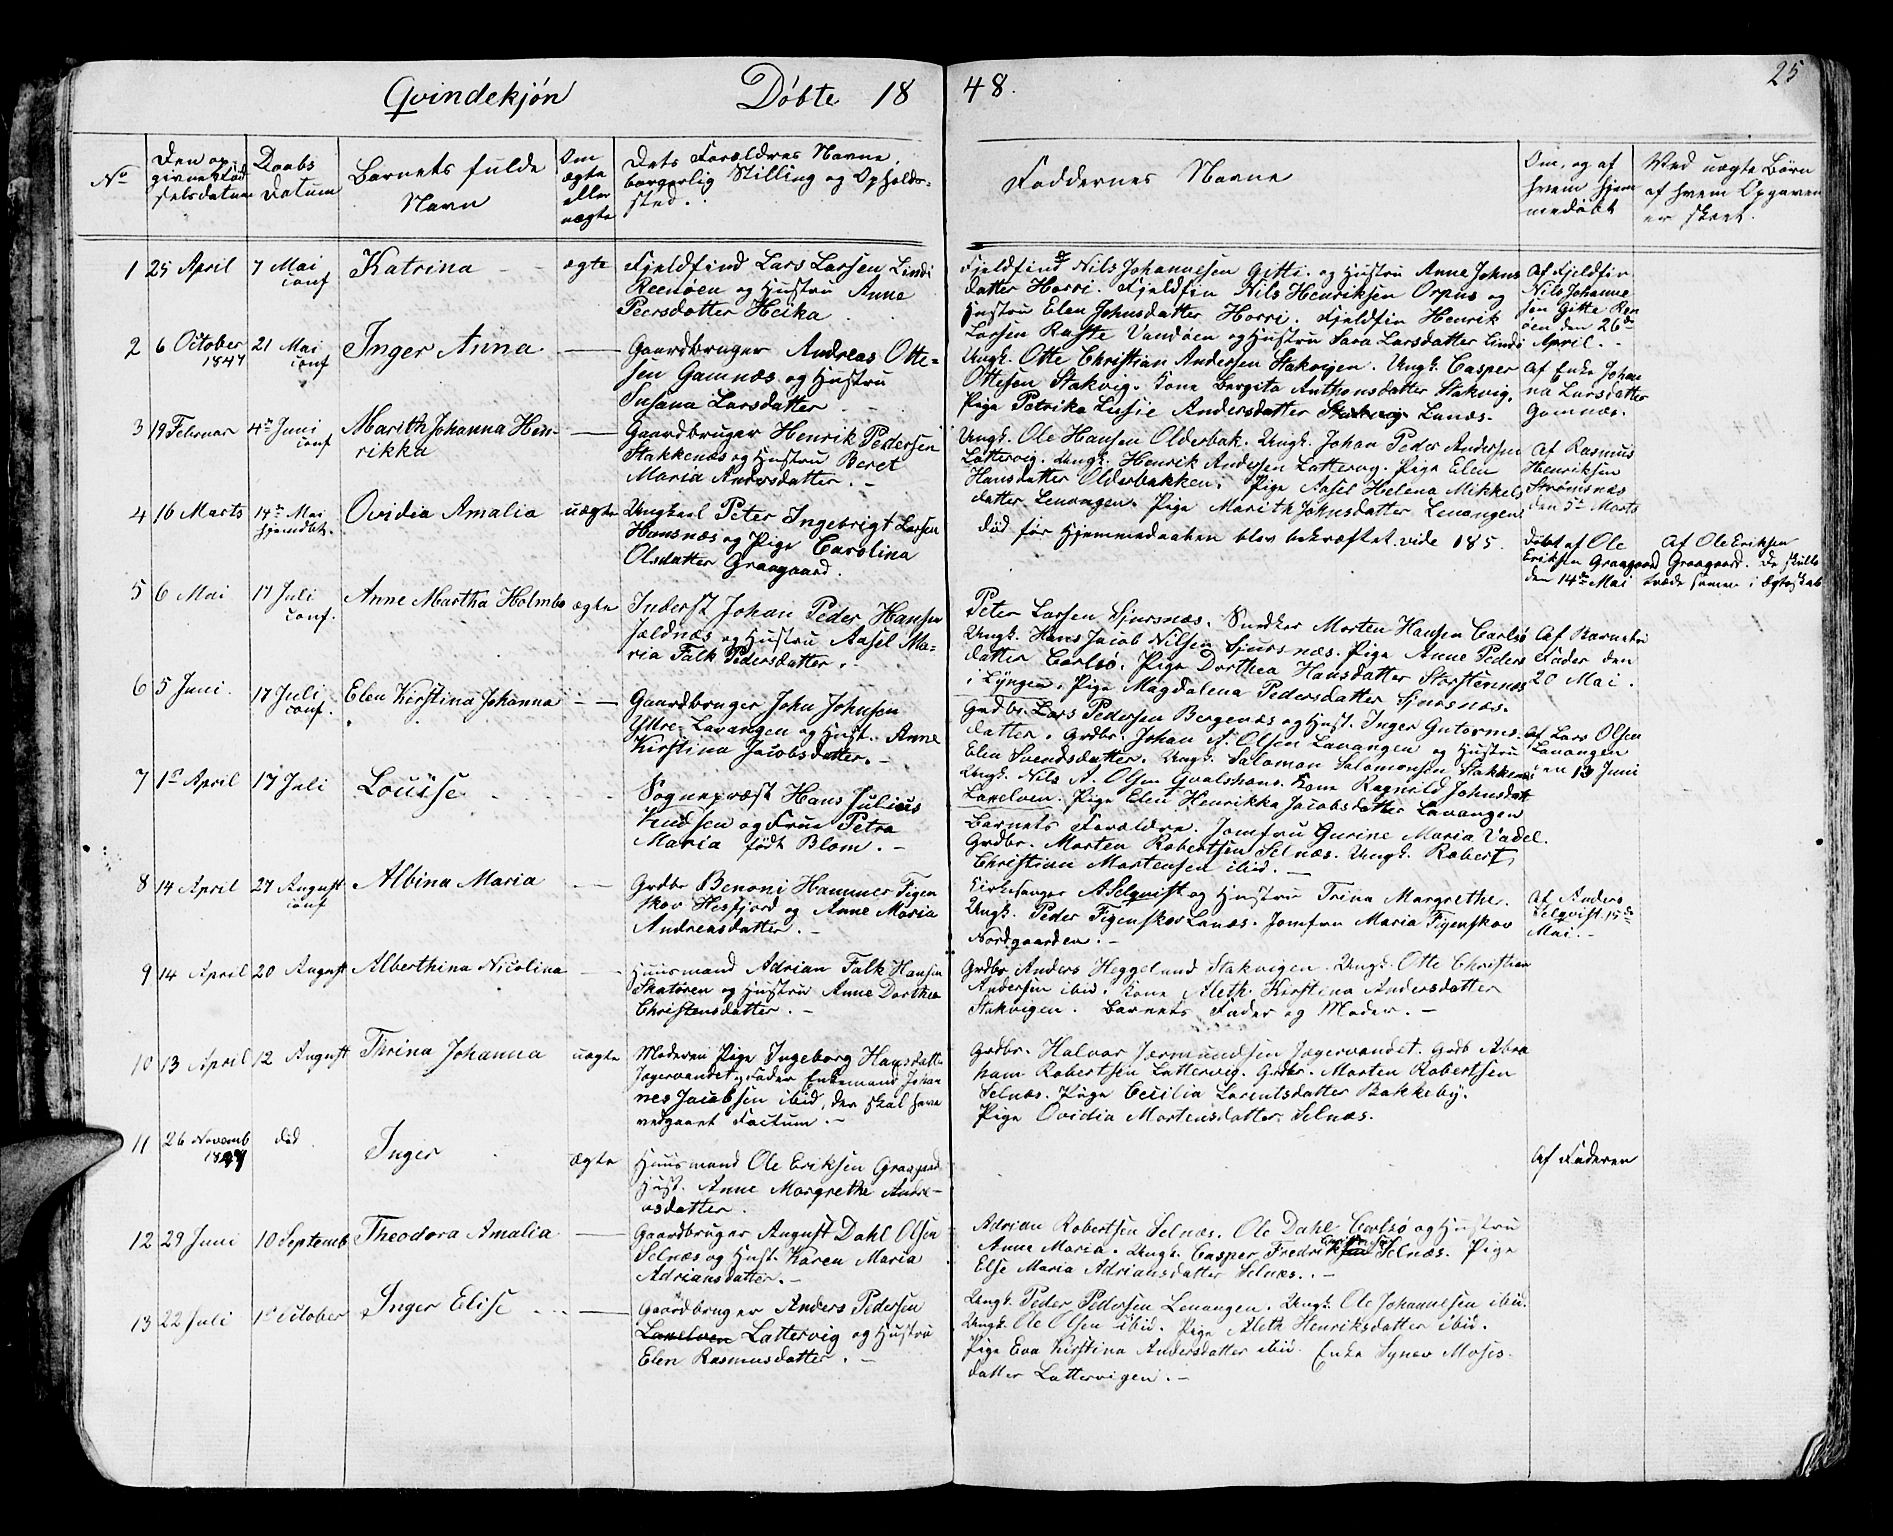 Qvindekjøn Døbte 18 48. 25
No
Den op-
givne Fød
selsdatum
Daabs
Datum
Barnets fulde
Navn
Om
ægte
eller
uægte
Dets Forældres Navne,
borgerlig Stilling og Opholds-
sted.
Faddernes Navne
Om, og af
hvem hjem
medøbt
Ved uægte Børn
af hvem Opgaven
er skeet.
1 25 April 7 Mai
conf
Katrina ægte
Fjeldfind Lars Larsen Lindi
Reenøen og Hustru Anne
Peersdatter Heika
Fjeldfind Nils Johannesen Gitti. og Hustru Anne Johns
datter Horri. Fjeldfin Nils Henriksen Orpus og
Hustru Elen Johnsdatter Horri. Fjeldfin Henrik
Larsen Raste Vandøen og Hustru Sara Larsdatter Lindi
Af Fjeldfin
Nils Johanne
sen Gitte Ren
øen den 26de
April.
2 6 October
1847
21 Mai
conf
Inger Anna
Gaardbruger Andreas Otte-
sen Gamnæs og Hustru
Susana Larsdatter
Ungk. Otte Christian Andersen Stakvigen. Ungk. Casper
Ottesen Stakvig. Kone Bergita Anthonsdatter Stakvig,
Pige Petrika Lusie Andersdatter Lanæs.
Af Enke Johan
na Larsdatter
Gamnæs.
3 19 Februar 4de Juni
conf
Marith Johanna Hen-
rikka
Gaardbruger Henrik Pedersen
Stakkenæs og Hustru Beret
Maria Andersdatter.
Ungk. Ole Hansen Olderbak. Ungk. Johan Peder Andersen
Lattervig. Ungk. Henrik Andersen Lattervig. Pige Elen
Hansdatter Olderbakken. Pige Aasel Helena Mikkels
datter Lenangen. Pige Marith Johnsdatter Lenangen
Af Rasmus
Henriksen
Strømsnæs
den 5te Marts
4 16 Marts 14de Mai
hjemdbt.
Ovidia Amalia uægte
Ungkarl Peter Ingebrigt Larsen
Hansnæs og Pige Carolina
Olsdatter Graagaard.
Død før Hjemmedaaben blev bekræftet vide 185.
Døbt af Ole
Eriksen Graagaard
den 14de Mai
Af Ole Eriksen
Graagaard. De skulle
træde samen i Ægteskab
5 6 Mai 17 Juli
conf.
Anne Martha Holmbo ægte
Inderst Johan Peder Hansen
Jældnæs og Hustru Aasel Ma-
ria Falk Pedersdatter.
Peter Larsen Sjursnæs. Snedker Morten Hansen Carlsø
Ungk. Hans Jacob Nilsen Sjursnæs. Pige Anne Peders
datter Carlsø. Pige Dorthea Hansdatter Storstennæs
i Lyngen. Pige Magdalena Pedersdatter Sjursnæs.
Af Barnets
Fader den
20 Mai.
6 5 Juni. 17 Juli
conf.
Elen Kirstina Johanna
Gaardbruger John Johnsen
Ydre-Lavangen og Hust. Anne
Kirstina Jacobsdatter.
Grdbr. Lars Pedersen Bergenæs og Hust. Inger Gutorms-
datter. Grdbr. Johan A. Olsen Lavangen og Hustru
Elen Svendsdatter. Ungk. Salomon Salomonsen Stakkenæs
Ungk. Nils A. Olsen Hvalshans. Kone Ragnild Johnsdatt
Laxelven. Pige Elen Henrikka Jacobsdatter Lavangen
Af Lars Olsen
Lavangen
den 13 Juni
7 1ste April 17 Juli Louise
Sognepræst Hans Julius
Knudsen og Frue Petra
Maria født Blom.
Barnets Forældre. Jomfru Gurine Maria Vadel.
Grdbr. Morten Robertsen Selnæs. Ungk. Robert
Christian Mortensen ibid.
8 14 April 27 August
conf
Albina Maria
Grdbr Benoni Hammer Figen
skov Hesfjord og Anne Maria
Andreasdatter.
Kirkesanger A Selqvist og Hustru Trina Margrethe.
Ungk. Peder Figenskov Lanæs. Jomfru Maria Figenskov
Nordgaarden.
Af Anders
Selqvist 15de
Mai.
9 14 April 20 August Alberthina Nicolina
Huusmand Adrian Falk Hansen
Skatøren og Hustru Anne Dorthea
Christensdatter.
Grdbr Anders Heggelund Stakvigen. Ungk. Otte Christian
Andersen ibid. Kone Aleth Kirstina Andersdatter
Stakvigen. Barnets Fader og Moder.
10 13 April 12 August Thrina Johanna uægte
Moderen Pige Ingeborg Hansdatt
Jægervandet, Fader Enkemand Johan
nes Jacobsen ibid, der skal have
vedgaaet Factum.
Grdbr. Halvor Jørmundsen Jægervandet. Grdb Abra
ham Robertsen Lattervig. Grdbr. Morten Robertsen
Selnæs. Pige Cecilia Larentsdatter Bakkeby.
Pige Ovidia Mortensdatter Selnæs.
11 26 Novemb
1847
død
Inger ægte
Huusmand Ole Eriksen Graagaard
Hust. Anne Margrethe Andre-
asdatter.
Af Faderen
12 29 Juni 10 Septemb Theodora Amalia
Gaardbruger August Dahl Olsen
Selnæs og Hust. Karen Maria
Adriansdatter.
Adrian Robertsen Selnæs. Ole Dahl Carlsø og Hustru
Anne Maria. Ungk. Casper Fredrik Selnæs. Pige
Else Maria Adriansdatter Selnæs.
13 22 Juli 1ste October Inger Elise
Gaardbruger Anders Pedersen
Laxelven Lattervig og Hustru
Elen Rasmusdatter.
Ungk. Peder Pedersen Lenangen. Ungk. Ole Johannesen ibid.
Ungk. Ole Olsen ibid. Pige Aleth Henriksdatter ibid.
Pige Eva Kirstina Andersdatter ibid. Enke Synev Moses-
datter Lattervigen.